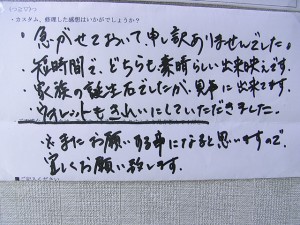 ・カスタム、修理した感想はいかがでしょうか?
・急がせておいて、申し訳ありませんでした。
・短時間で、どちらも素晴らしい出来映えです。
・家族の誕生石でしたが、見事に出来てます。
・ウォレットもきれいにしていただきました。
又またお願いする事になると思いますので、
宜しくお願い致します。